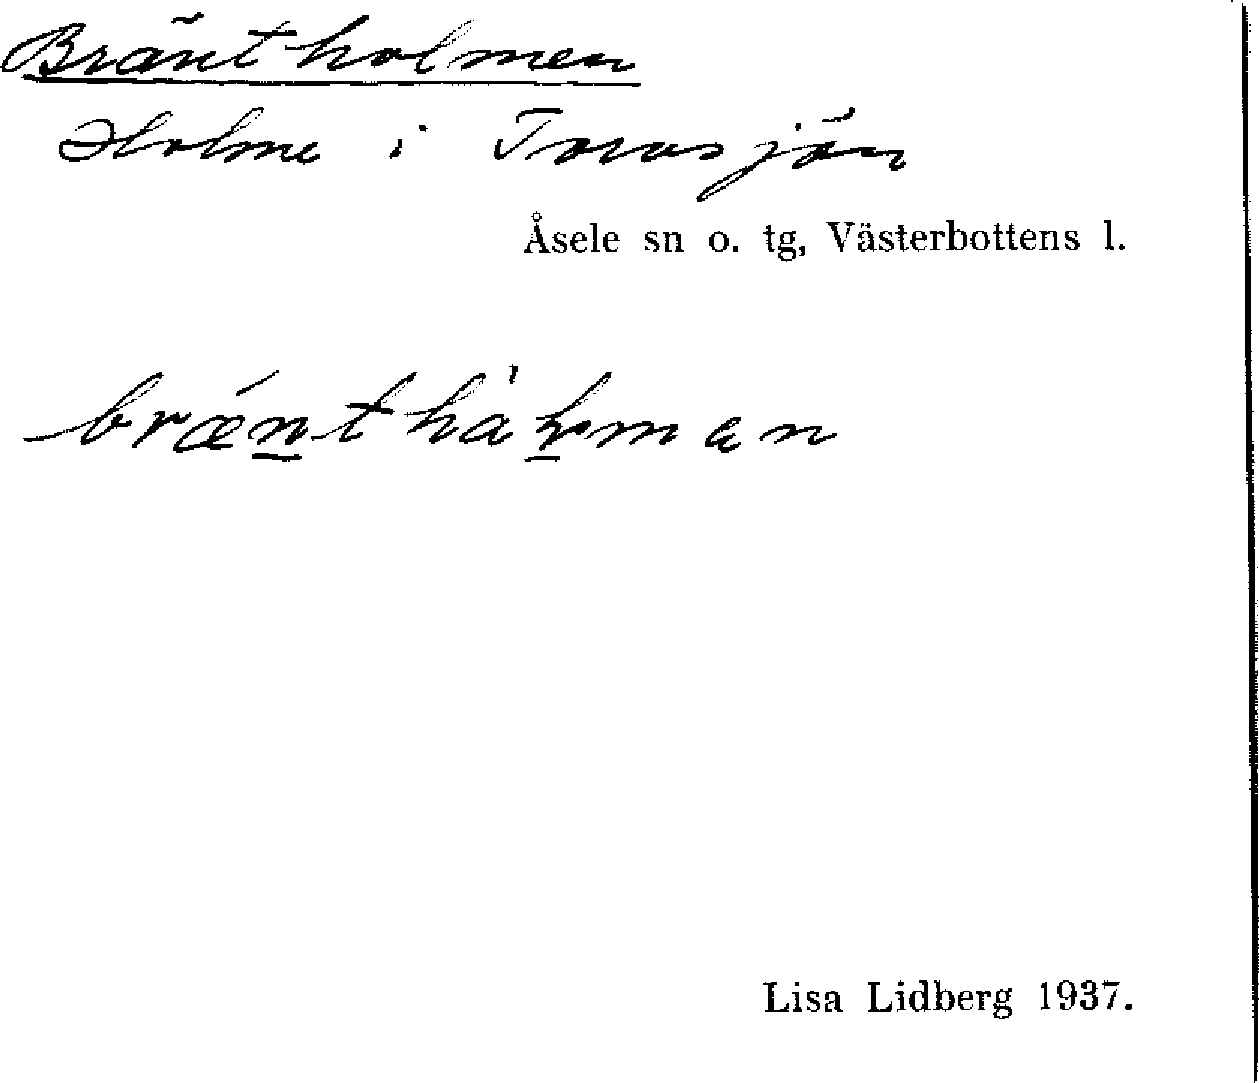 Bräntholmen
Holme i Torvsjön
Åsele sn o. tg, Västerbottens l.
Lisa Lidberg 1937.